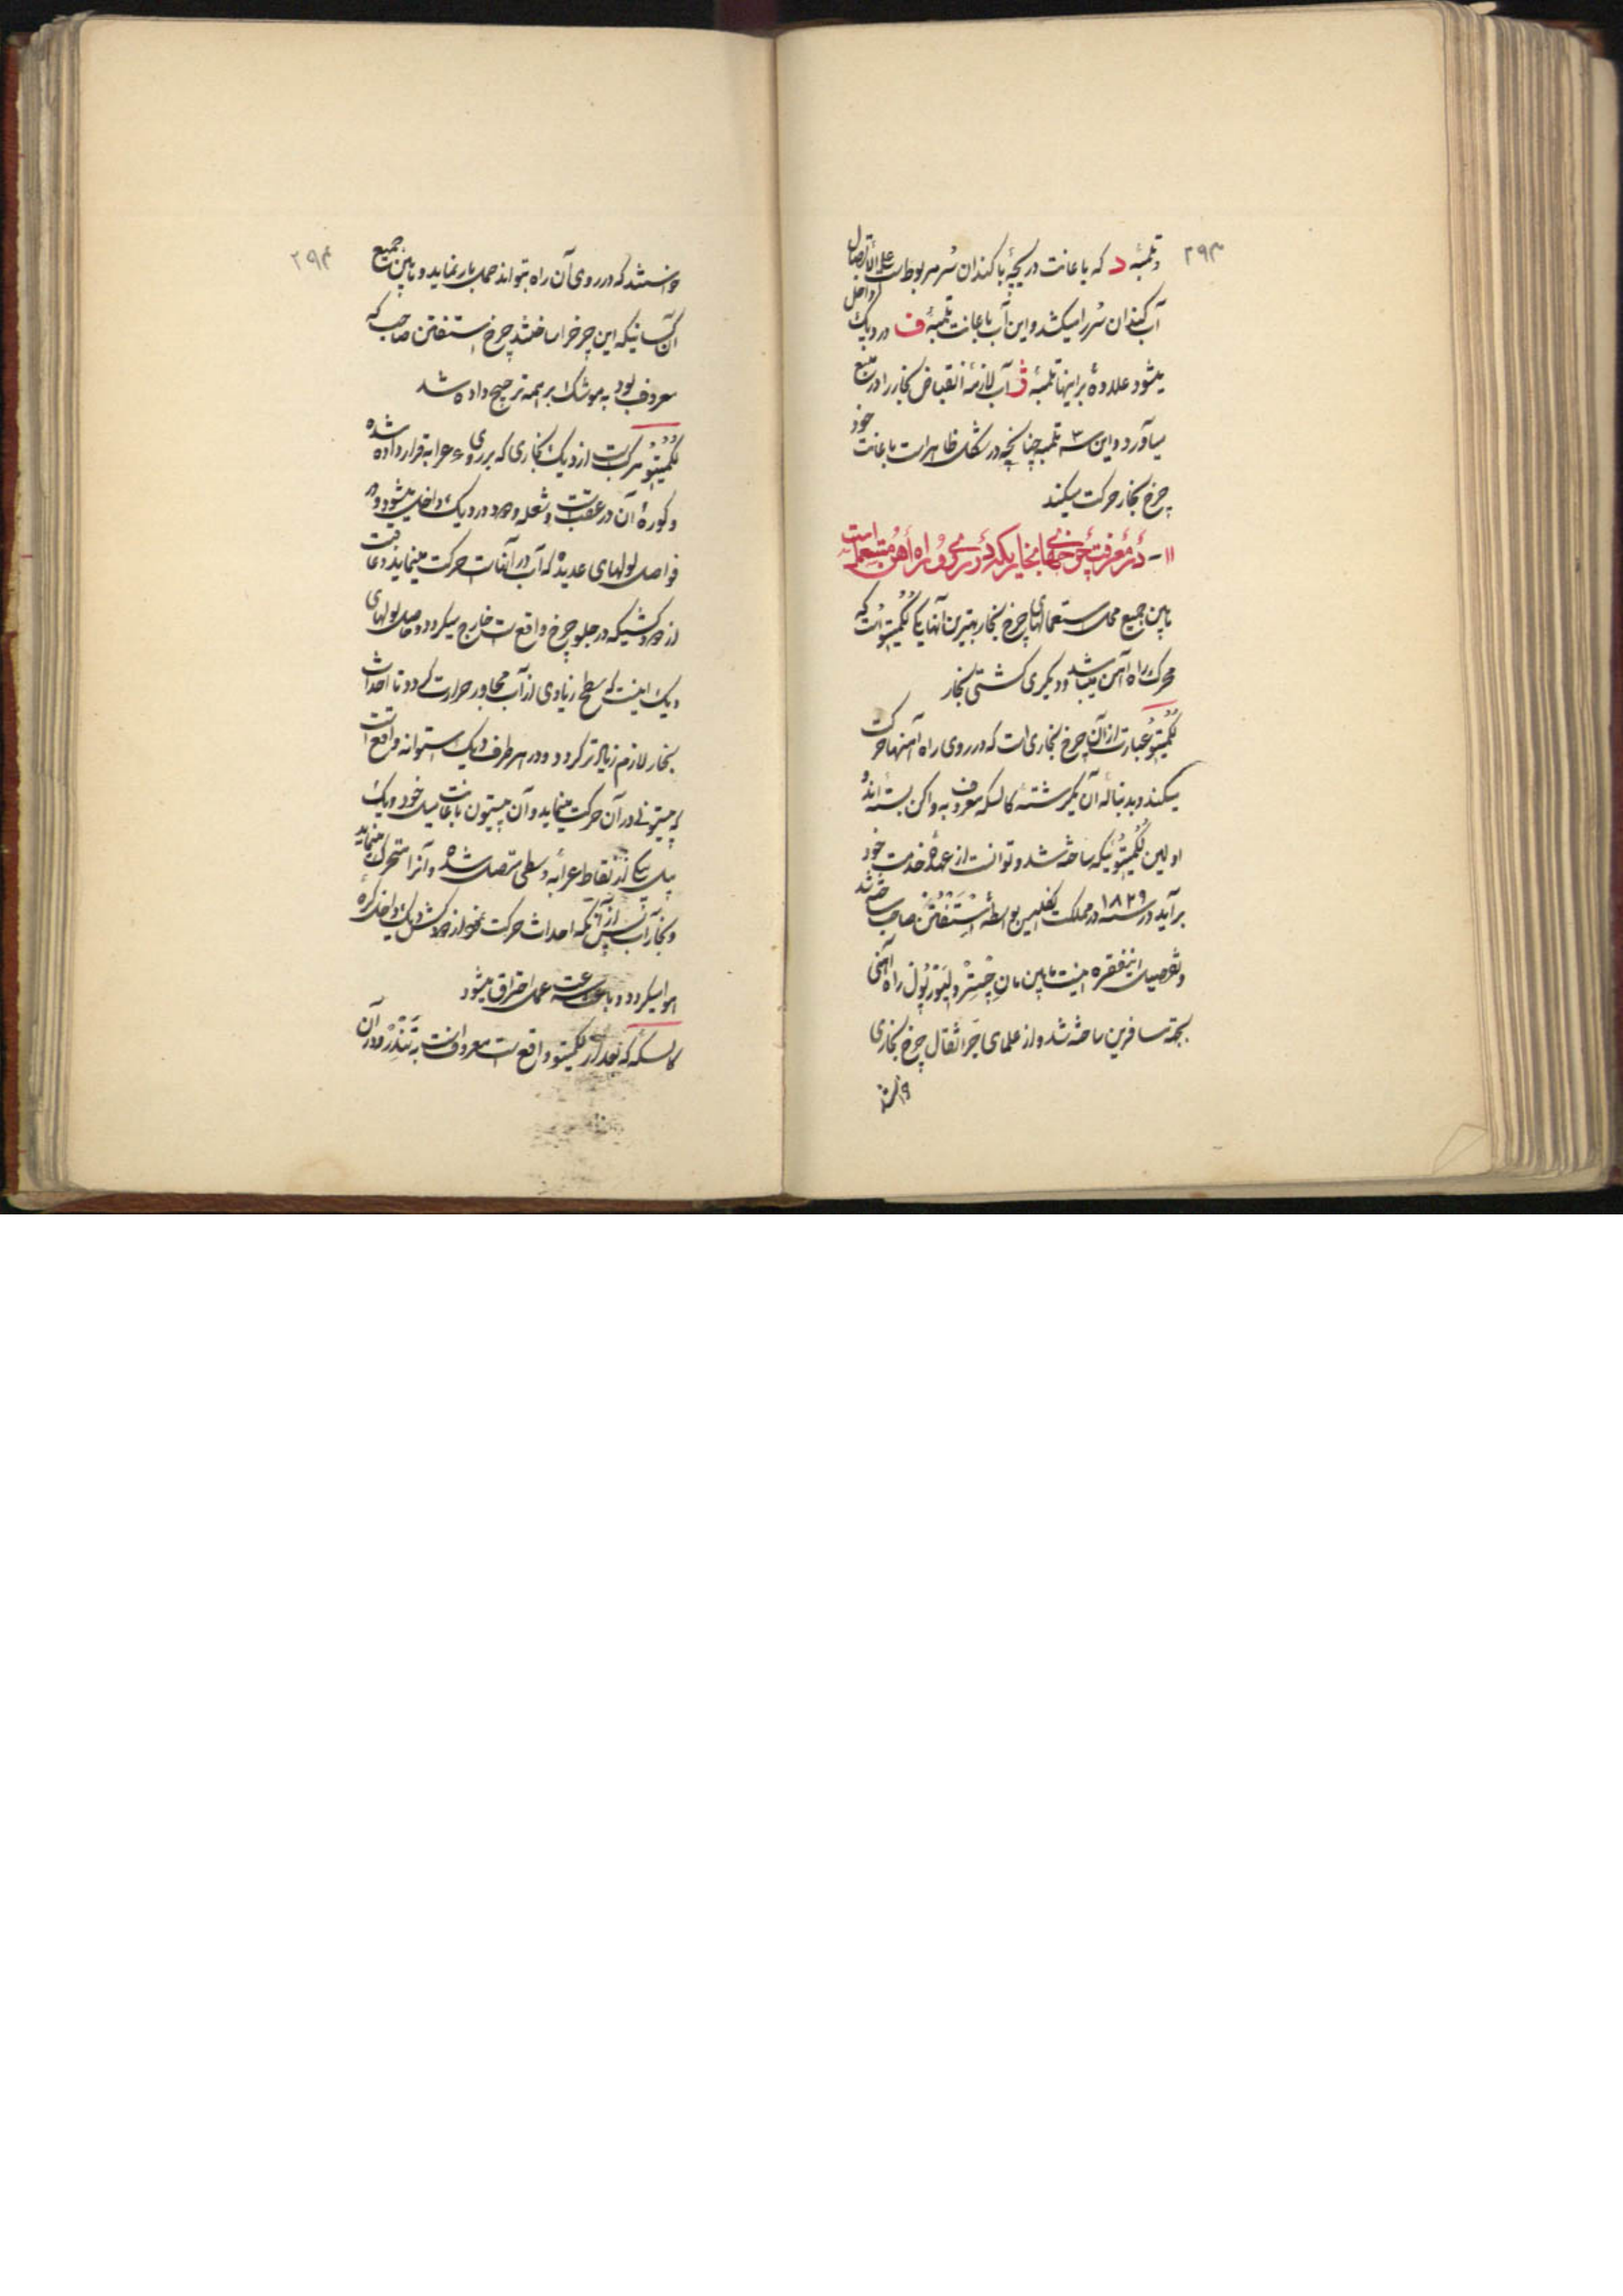 ۲۹۳
و تلمبهٔ د که باعانت دریچهٔ با کندان سُر مربوط است علی الاتصال
آب کندان سُر را میکشد و این آب باعانت تلمبهٔ ف در دیک داخل
میشود علاوهٔ بر اینها تلمبهٔ ق آب لازمهٔ انقباض بخار را در منبع
میآورد و این سه تلمبه چنانچه در شکل ظاهر است باعانت خود
چرخ بخار حرکت میکند
۱۱ - در معرفت چرخهای بخاریکه در روی راه آهن مستعمل است
مابین جمیع محل استعمالهای چرخ بخار بهترین آنها یکی لکمیتو است که
محرک راه آهن میباشد و دیکری کشتی بخار
لکمیتو عبارت از آن چرخ بخاری است که در روی راه آهنها حرکت
میکند و بدنبالهٔ آن یکرشتهٔ کالسکه معروف به واکن بسته اند
اولین لکمیتوئیکه ساخته شد و توانست از عهدهٔ خدمت خود
برآید در سنه ۱۸۲۹ در مملکت انکلیس بواسطهٔ استفنتن صاحب ساخته شد
و تفصیل اینفقره اینست مابین مان چستر و لیورپول راه آهنی
بجهة مسافرین ساخته شد و از علمای جر اثقال چرخ بخاری
خواستند
۲۹۴
خواستند که در روی آن راه بتواند حمل بار نماید و مابین جمیع
آن کسانیکه این چرخ را ساختند چرخ استفنتن صاحب که
معروف بود به موشک بر همه ترجیح داده شد
لکمیتو مرکب است از دیک بخاری که بر روی ۶ عرابه قرار داده شده
و کورهٔ آن در عقب است و شعله و دود در دیک داخل میشود و در
فواصل لولهای عدیده که آب در آنهاست حرکت مینماید و عاقبت
از دودکشیکه در جلو چرخ واقع است خارج میکردد و حاصل لولهای
دیک اینست که سطح زیادی از آب مجاور حرارت کردد تا احداث
بخار لازم زیادتر کردد و در هر طرف دیک استوانه واقع است
که پیستونی در آن حرکت مینماید و آن پیستون باعانت میل خود و یک
میل بیکی از نقاط عرابه وسطی متصل شده و آنرا متحرک مینماید
و بخار آب پس از آنکه احداث حرکت نمود از دودکش دیک داخل کرهٔ
هوا میکردد و باعث سرعت عمل احتراق میشود
کالسکه که بعد از لکمیتو واقع است معروفست به تندر و در آن